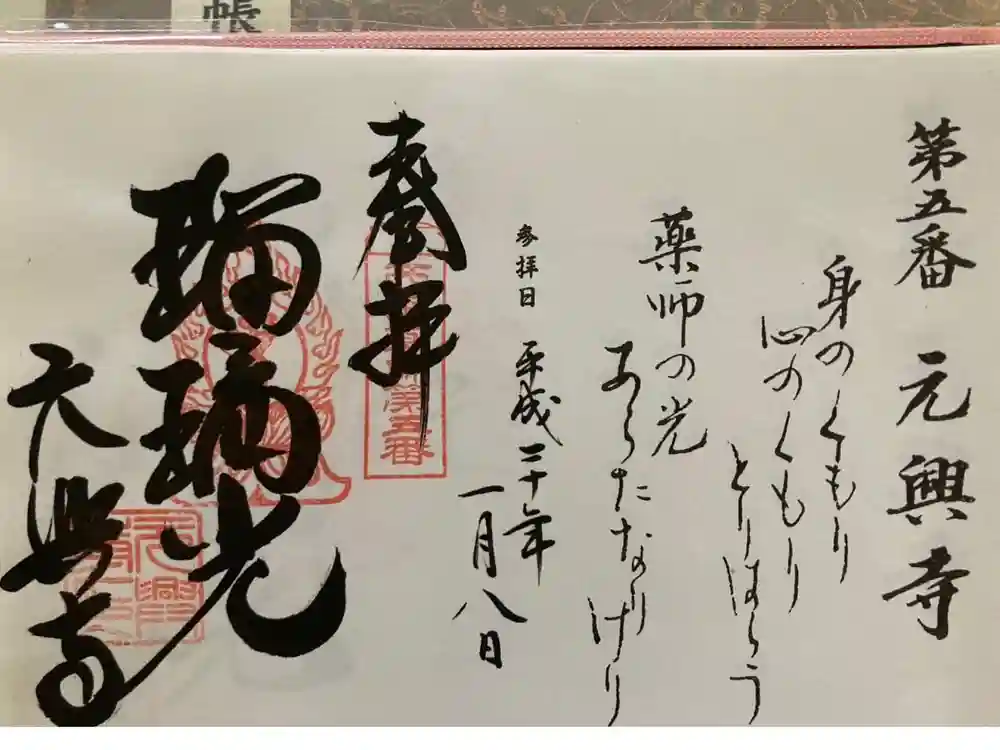 帳
第五番 元興寺
身のくもり
心のくもり
とりはらう
薬師の光
あらたなりけり
参拝日 平成三十年
一月八日
奉拝
第五番
瑠璃光
元興寺